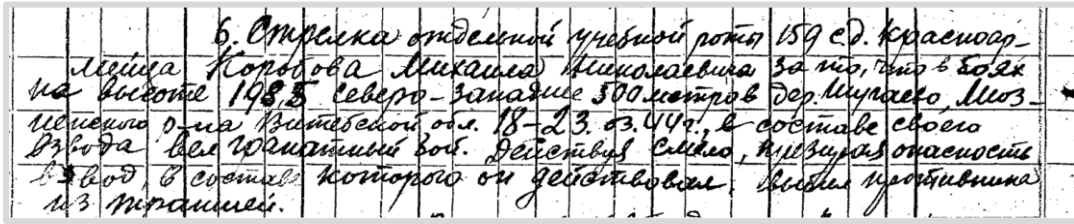 6. Стрелка отдельной учебной роты 159 с.д. Красноар-
мейца Коробова Михаила Николаевича за то, что в боях
на высоте 193 5 северо-западнее 500 метров дер.
ненского р-на Витебской обл. 18-23. 03. 44 г., в составе своего
взвода вел гранатный бой. Действуя смело, презирая опасность
взвод, в составе которого он действовал, выбил противника
из траншей.